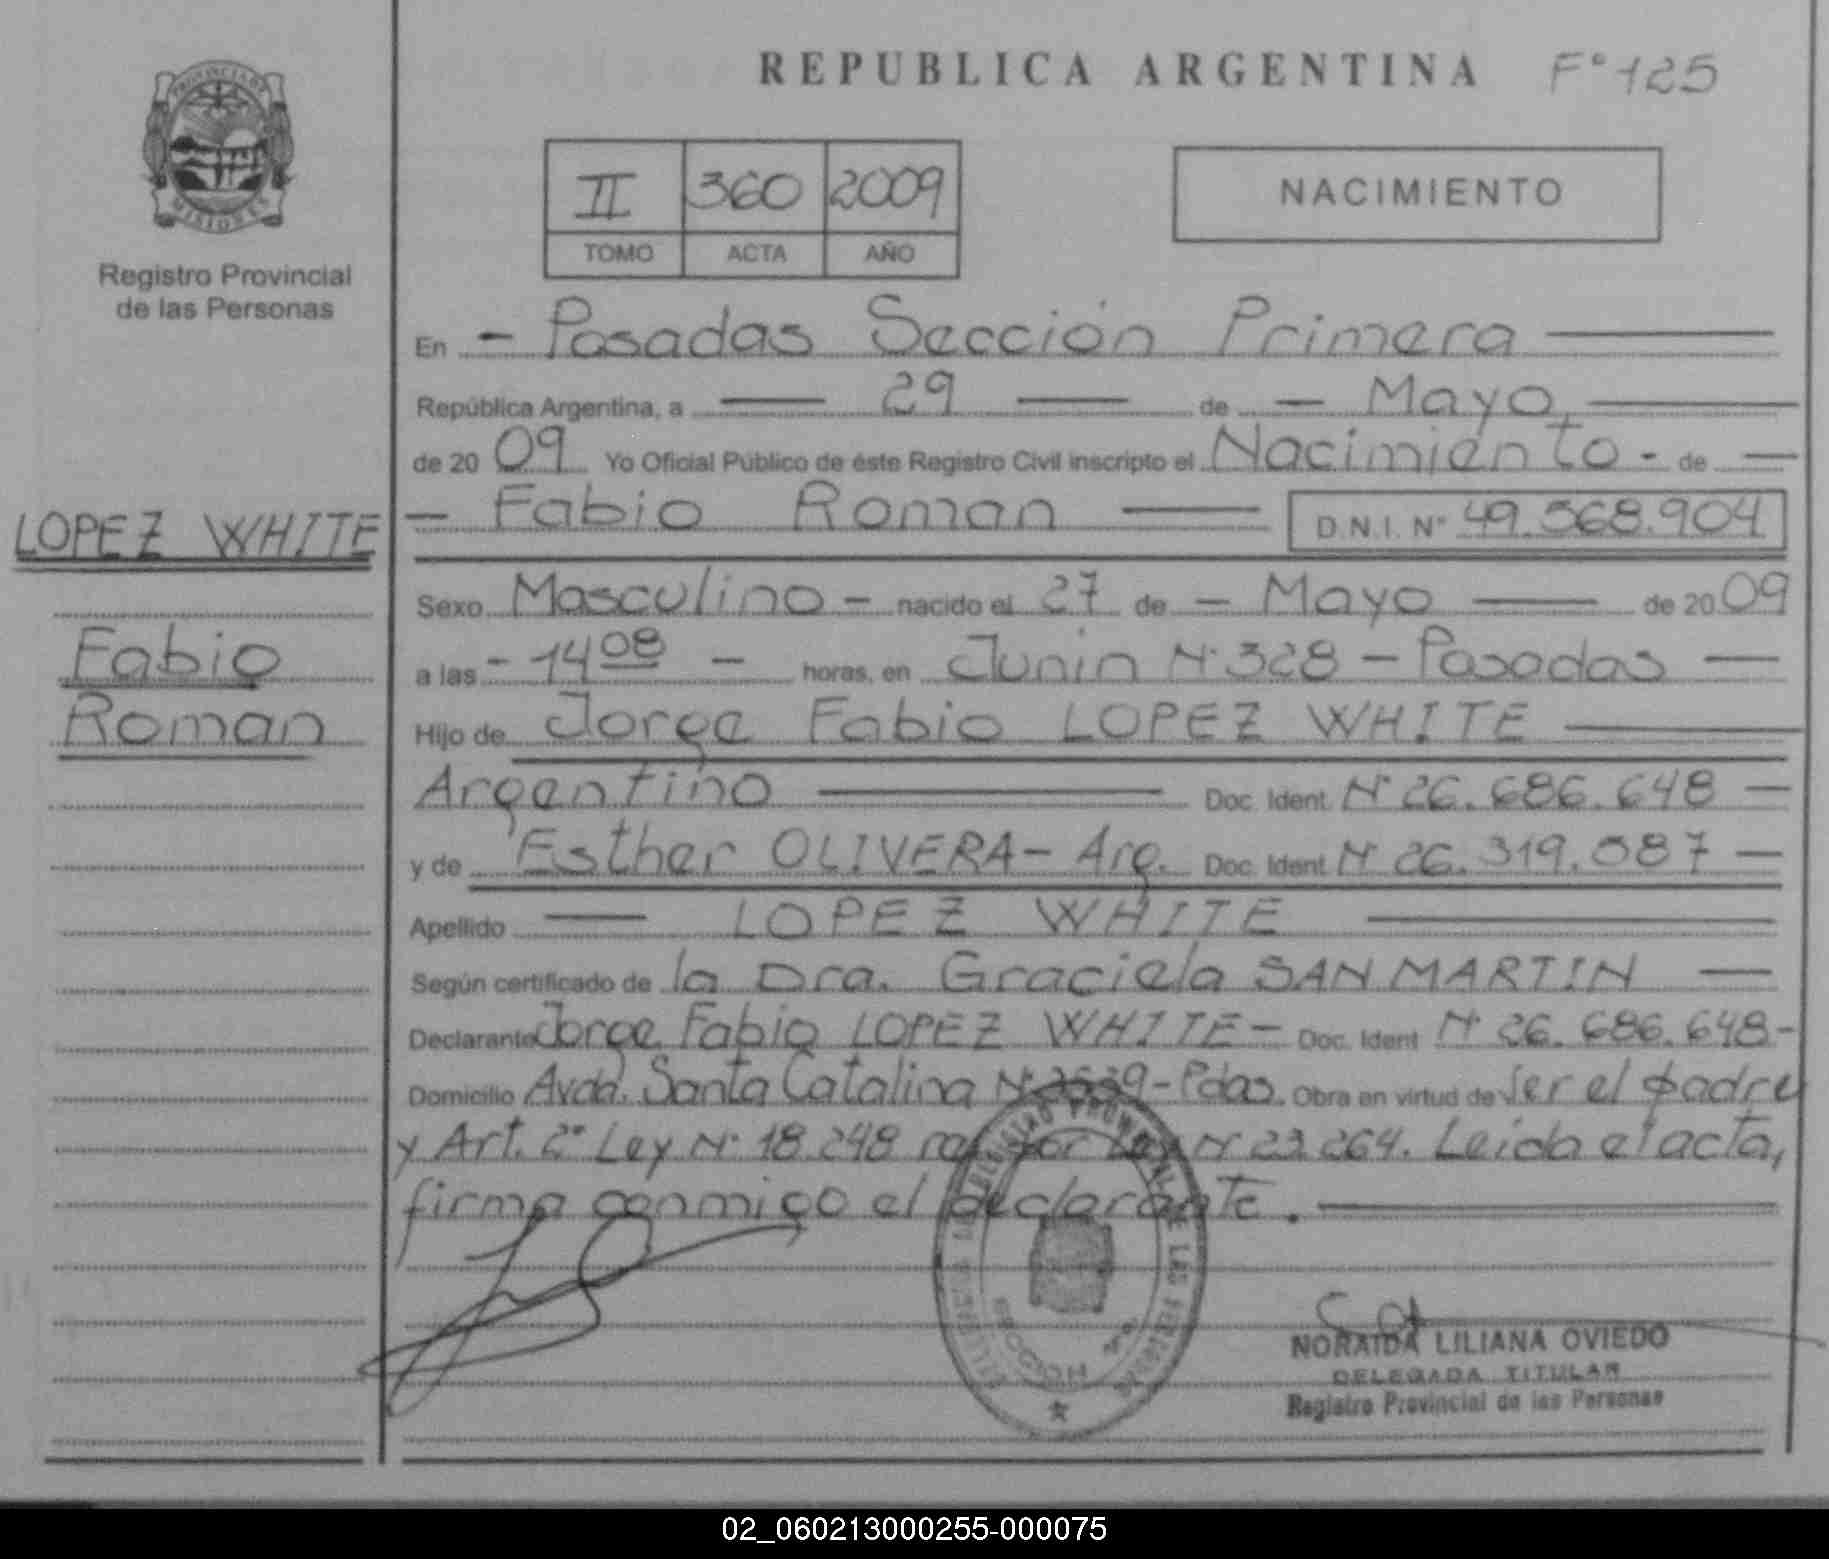 REPUBLICA ARGENTINA F° 125
PROVINCIA DE MISIONES
Registro Provincial
de las Personas
II 360 2009
TOMO ACTA AÑO
NACIMIENTO
En - Posadas Sección Primera
República Argentina, a 29 de - Mayo,
de 2009 Yo Oficial Público de éste Registro Civil inscripto el Nacimiento - de
- Fabio Roman D.N.I. N° 49.568.904
LOPEZ WHITE
Fabio
Roman
Sexo Masculino - nacido el 27 de - Mayo de 2009
a las - 14 08 - horas, en Junin N° 328 - Posadas
Hijo de Jorge Fabio LOPEZ WHITE
Argentino Doc. Ident. N° 26.686.648
y de Esther OLIVERA - Arg. Doc. Ident. N° 26.319.587
Apellido LOPEZ WHITE
Según certificado de la Dra. Graciela SAN MARTIN
Declarante Jorge Fabio LOPEZ WHITE - Doc. Ident N° 26.686.648-
Domicilio Avda. Santa Catalina - Pdas. Obra en virtud de Ser el padre
y Art. 2° Ley N° 18.248 N° 23.264. Leida el acta,
firma conmigo el declarante.
NORAIDA LILIANA OVIEDO
DELEGADA TITULAR
Registro Provincial de las Personas
02_060213000255-000075